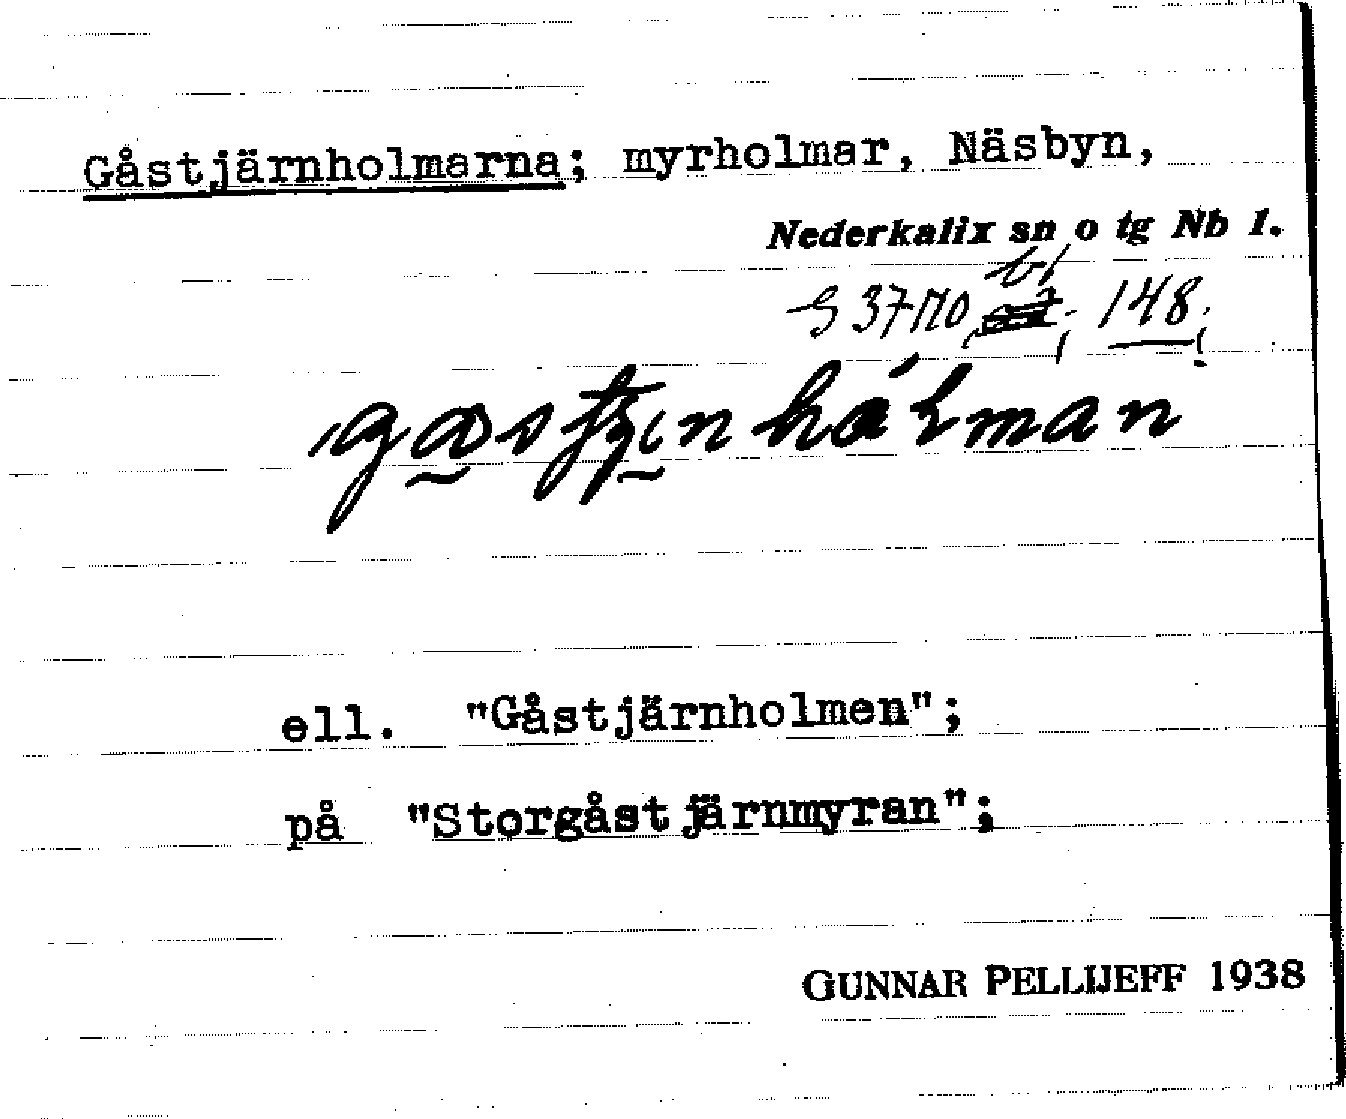 Gåstjärnholmarna; myrholmar, Näsbyn,
Nederkalix sn o tg Nb 1.
bl
S 37 NO, 148;
ell. "Gåstjärnholmen";
på "Storgåstjärnmyran";
GUNNAR PELLIJEFF 1938